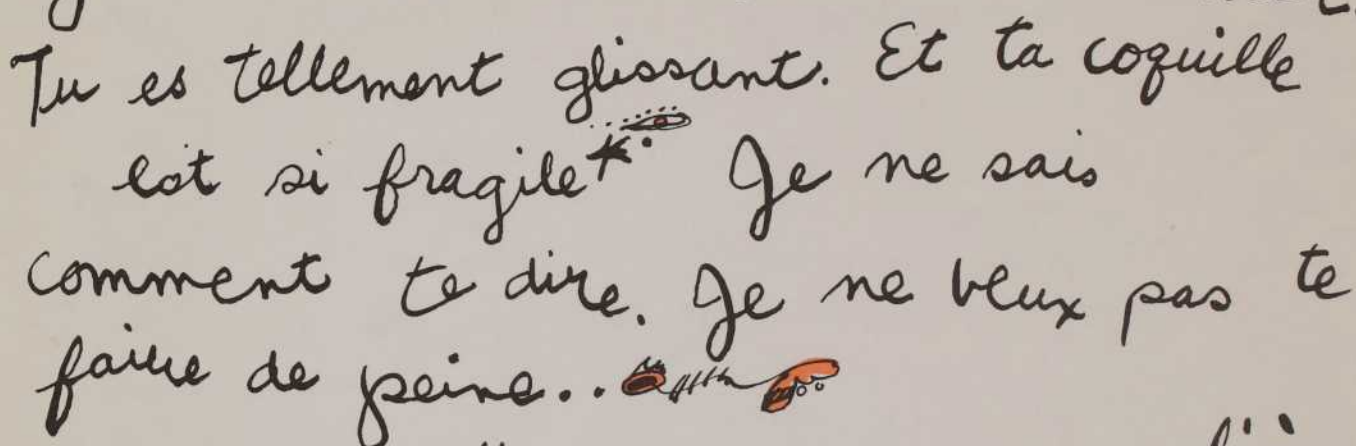 Tu es tellement glissant. Et ta coquille
est si fragile*. Je ne sais
comment te dire. Je ne veux pas te
faire de peine..